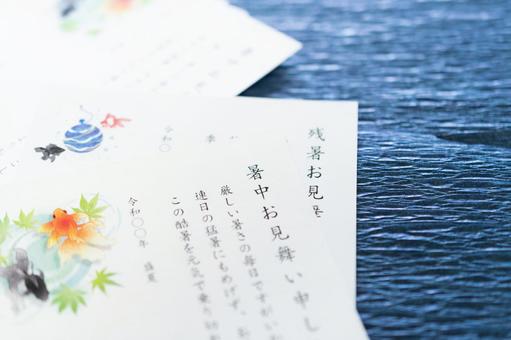 残暑お見
令和〇
暑中お見舞い申し
厳しい暑さの毎日ですが
連日の猛暑にもめげず、お
この酷暑を元気で乗り切
令和〇〇年 盛夏